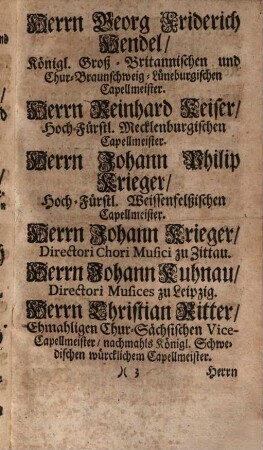 Herrn Georg Friderich
Hendel/
Königl. Groß-Britannischen und
Chur-Braunschweig-Lüneburgischen
Capellmeister.
Herrn Reinhard Keiser/
Hoch-Fürstl. Mecklenburgischen
Capellmeister.
Herrn Johann Philip
Krieger/
Hoch-Fürstl. Weissenfelßischen
Capellmeister.
Herrn Johann Krieger/
Directori Chori Musici zu Zittau.
Herrn Johann Kuhnau/
Directori Musices zu Leipzig.
Herrn Christian Ritter/
Ehmahligen Chur-Sächsischen Vice-
Capellmeister/ nachmahls Königl. Schwe-
dischen würcklichem Capellmeister.
)( 3 Herrn